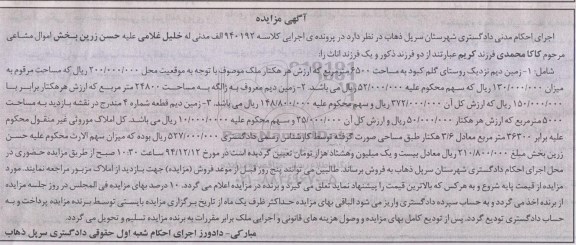 آگهی مزایده
اجرای احکام مدنی دادگستری شهرستان سرپل ذهاب در نظر دارد در پرونده ی اجرایی کلاسه ۹۴۰۱۹۲ الف مدنی له خلیل غلامی علیه حسن زرین بخش اموال مشاعی
مرحوم کاکا محمدی فرزند کریم عبارتند از دو فرزند ذکور و یک فرزند اناث را:
شامل: ۱- زمین دیم نزدیک روستای گلم کبود به مساحت ۶۵۰۰ مترمربع که ارزش هر هکتار ملک موصوف با توجه به موقعیت محل ۲۰۰/۰۰۰/۰۰۰ ریال که مساحت مرقوم به
میزان ۱۳۰/۰۰۰/۰۰۰ ریال که سهم محکوم علیه ۵۲/۰۰۰/۰۰۰ ریال می باشد ۲- زمین دیم معروف به زالگه به مساحت ۲۴۸۰۰ متر مربع که ارزش هرهکتار برابر با
۱۵۰/۰۰۰/۰۰۰ ریال که ارزش کل آن ۳۷۲/۰۰۰/۰۰۰ ریال و سهم محکوم علیه ۱۴۸/۸۰۰/۰۰۰ ریال می باشد. ۳- زمین دیم قطعه شماره ۴ مندرج در نقشه بازدید به مساحت
۵۰۰۰ مترمربع که ارزش هر هکتار ۵۰/۰۰۰/۰۰۰ ریال و ارزش کل آن ۲۵/۰۰۰/۰۰۰ و سهم محکوم علیه ۱۰/۰۰۰/۰۰۰ ریال می باشد. کل املاک موروثی غیر منقول محکوم
علیه برابر ۳۶۳۰۰ متر مربع معادل ۳/۶ هکتار طبق مساحی صورت گرفته توسط کارشناس رسمی دادگستری ۵۲۷/۰۰۰/۰۰۰ ریال بوده که میزان سهم الارث محکوم علیه حسن
زرین بخش مبلغ ۲۱۰/۸۰۰/۰۰۰ ریال معادل بیست و یک میلیون و هشتاد هزار تومان تعیین گردیده است در مورخ ۹۴/۱۲/۱۲ ساعت ۱۰:۳۰ صبح از طریق مزایده حضوری در
محل اجرای احکام دادگستری شهرستان سرپل ذهاب به فروش برساند. طالبین می توانند پنج روز قبل از موعد فروش (مزایده) جهت بازدید از املاک مزبور مراجعه نمایند. مورد
مزایده از قیمت پایه شروع و به هرکس که بالاترین قیمت را پیشنهاد نماید تعلق می گیرد و برنده در مزایده اعلام می گردد. ۱۰ درصد بهای مزایده فی المجلس در روز جلسه مزایده
از برنده اخذ می گردد و به حساب سپرده دادگستری واریز می شود الباقی بهای مزایده حداکثر ظرف یک ماه از تاریخ برگزاری مزایده بایستی توسط برنده مزایده پرداخت و به
حساب دادگستری تودیع گردد. پس از تودیع کامل بهای مزایده و وصول هزینه های قانونی و اجرایی ملک برابر مقررات به برنده مزایده تسلیم و تحویل می گردد.
مبارکی- دادورز اجرای احکام شعبه اول حقوقی دادگستری سرپل ذهاب